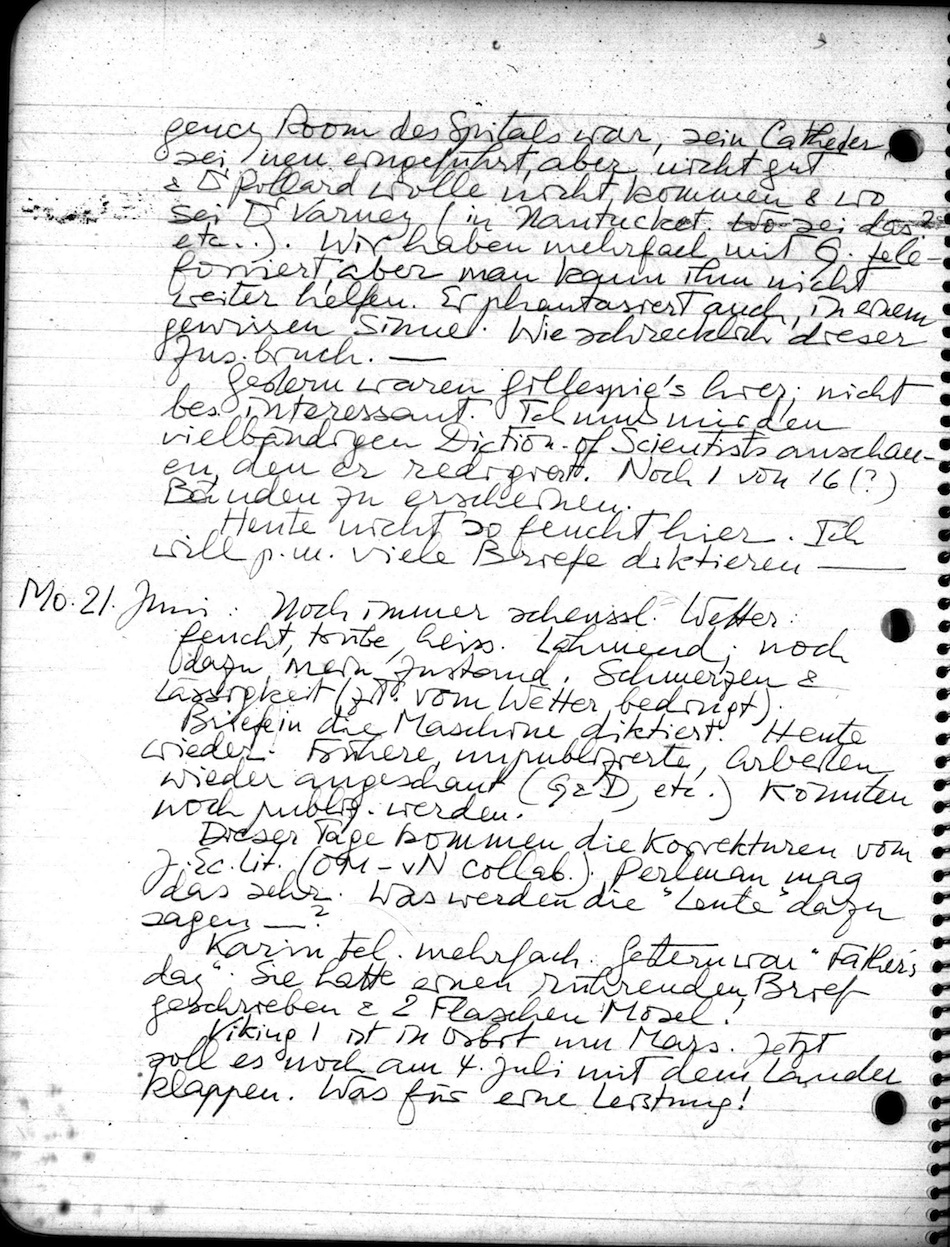 gency Room des Spitals war, sein Catheder
sei neu eingeführt, aber nicht gut
& Dr Pollard wolle nicht kommen & wo
sei Dr Varney (in Nantucket. Wo sei das?
etc..). Wir haben mehrfach mit G. tele-
foniert aber man kann ihm nicht
weiter helfen. Er phantasiert auch, in einem
gewissen Sinne. Wie schrecklich dieser
Zus.bruch. —
Gestern waren Gillespie's hier; nicht
bes. interessant. Ich muss mir den
vielbändigen Diction. of Scientists anschau-
en, den er redigiert. Noch 1 von 16 (?)
Bänden zu erscheinen.
Heute nicht so feucht hier. Ich
will p.m. viele Briefe diktieren —
Mo. 21. Juni: Noch immer scheussl. Wetter:
feucht, trübe, heiss. Lähmend; noch
dazu mein Zustand. Schmerzen &
Lässigkeit (z.T. vom Wetter bedingt).
Briefe in die Maschine diktiert. Heute
wieder. Frühere, unpublizierte, Arbeiten
wieder angeschaut (G&D, etc.) Könnten
noch publiz. werden.
Dieser Tage kommen die Korrekturen vom
J. Ec. Lit. (OM–vN collab.). Perlman mag
das sehr. Was werden die "Leute" dazu
sagen —?
Karin tel. mehrfach. Gestern war "Father's
day". Sie hatte einen rührenden Brief
geschrieben & 2 Flaschen Mosel!
Viking 1 ist in Orbit um Mars. Jetzt
soll es noch am 4. Juli mit dem Lander
klappen. Was für eine Leistung!